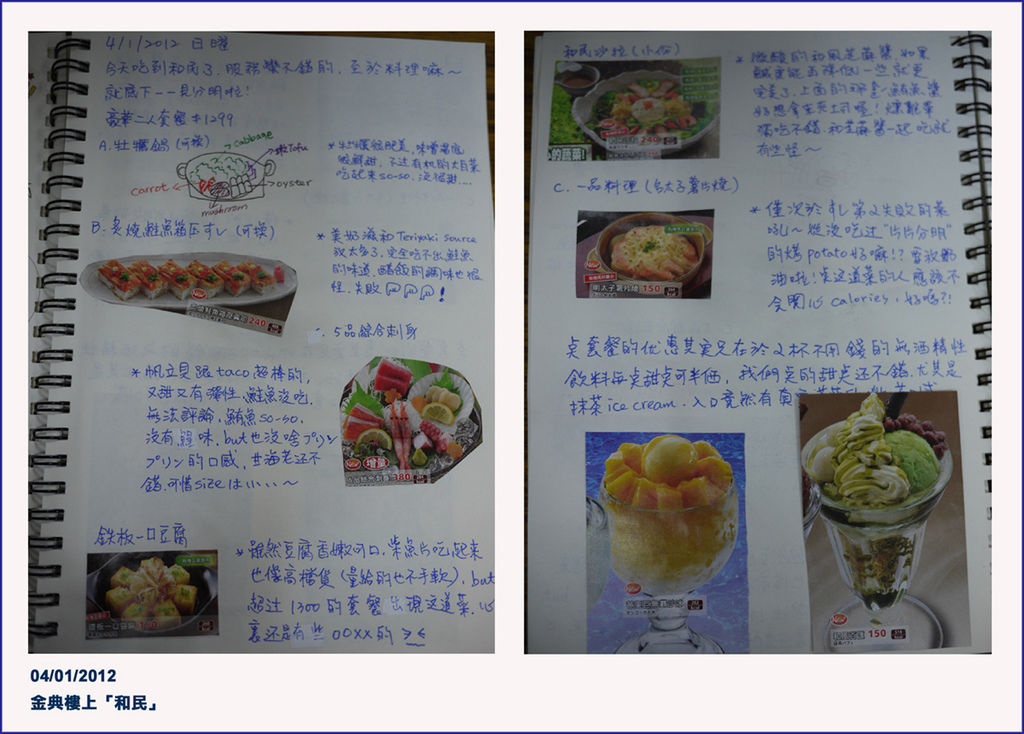 4/1/2012 日曜
今天吃到和民了,服務蠻不錯的,至於料理嘛~
就底下一一見分明啦!
豪華二人套餐 $1299
A.牡蠣鍋(可換)
cabbage
Tofu
carrot
oyster
mushroom
*牡蠣很肥美,味噌湯底
很鮮甜,不过有机的大白菜
吃起來so-so,沒很甜....
B.炙燒鮭魚箱压すし(可換)
*美奶滋和Teriyaki source
放太多了,完全吃不出鮭魚
的味道,醋飯的調味也很
怪,失敗 !
240
C.5品綜合刺身
*帆立貝跟taco超棒的,
又甜又有彈性,鮭魚沒吃,
無法評論,鮪魚so-so,
沒有腥味,but也沒啥プリン
プリン的口感,甘海老还不
錯,可惜size はい い~
增量
380
鉄板一口豆腐
鐵板一口豆腐
*雖然豆腐香嫩可口,柴魚片吃起來
也像高檔貨(量給的也不手軟),but
超过1300的套餐出現这道菜,心
裏还是有些OOXX的 ><
和民沙拉(小份)
的蔬菜!
240
*微酸的和風芝蔴醬,如果
鹹度能再降低一些就更
完美了,上面的那坨鮪魚醬
好想拿來夾土司喔!爆乾葉
滿吃不錯,和芝蔴醬一起吃就
有些怪~
C.一品料理(明太子薯片燒)
明太子薯片燒 150
*僅次於すし第2失敗的菜
吼~從沒吃过"片片分明"
的烤potato好嘛!?奮放奶
油啦!点这道菜的人應該不
会関心calories,好嗎?!
点套餐的优惠其实是在於2杯不用錢的無酒精性
飲料每点甜点可半価,我們点的甜点还不錯,尤其是
抹茶ice cream,入口竟然有
150
04/01/2012
金典樓上「和民」